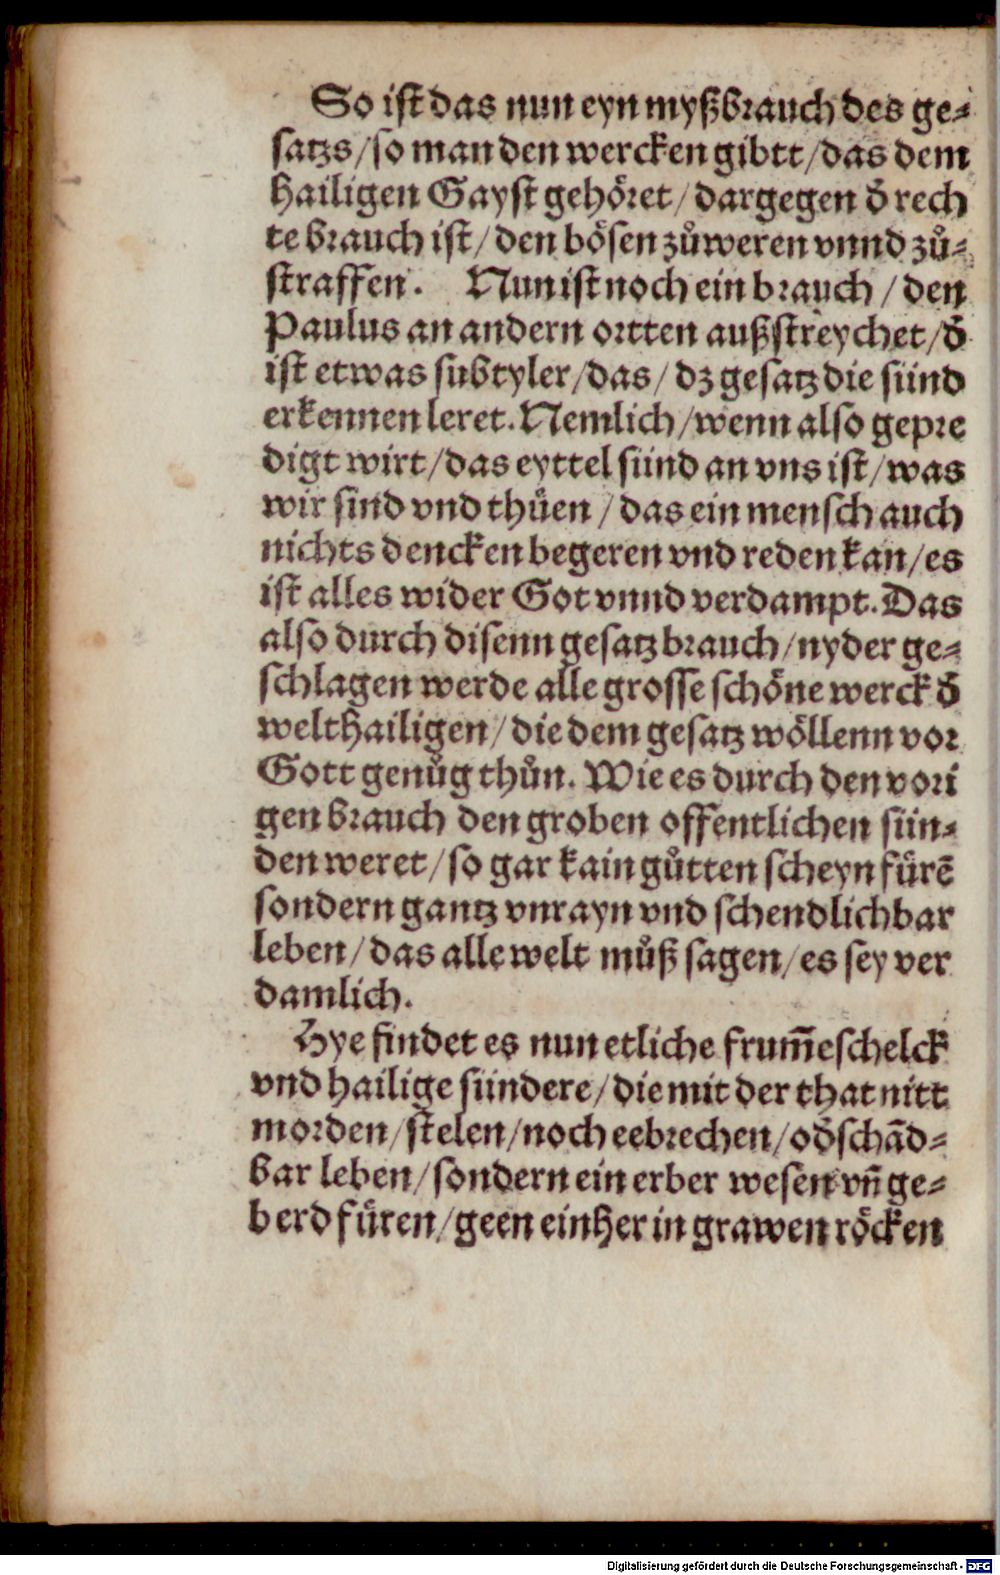 So ist das nun eyn myßbrauch des ge-
satzs/so man den wercken gibtt/das dem
hailigen Gayst gehöret/dargegen d̄ rech
te brauch ist/den bösen zůweren vnnd zů-
straffen. Nun ist noch ein brauch/den
Paulus an andern ortten außstreychet/d̄
ist etwas subtyler/das/dz gesatz die sünd
erkennen leret. Nemlich/wenn also gepre
digt wirt/das eyttel sünd an vns ist/was
wir sind vnd thüen/das ein mensch auch
nichts dencken begeren vnd reden kan/es
ist alles wider Got vnnd verdampt. Das
also durch disenn gesatz brauch/nyder ge-
schlagen werde alle grosse schöne werck d̄
welthailigen/die dem gesatz wöllenn vor
Gott genůg thůn. Wie es durch den vori
gen brauch den groben offentlichen sün-
den weret/so gar kain gůtten scheyn fürē
sondern gantz vnrayn vnd schendlichbar
leben/das alle welt můß sagen/es sey ver
damlich.
Hye findet es nun etliche frum̄e schelck
vnd hailige sündere/die mit der that nitt
morden/stelen/noch eebrechen/od̄ schād-
bar leben/sondern ein erber wesen vn̄ ge-
berd füren/geen einher in grawen röcken
Digitalisierung gefördert durch die Deutsche Forschungsgemeinschaft - DFG